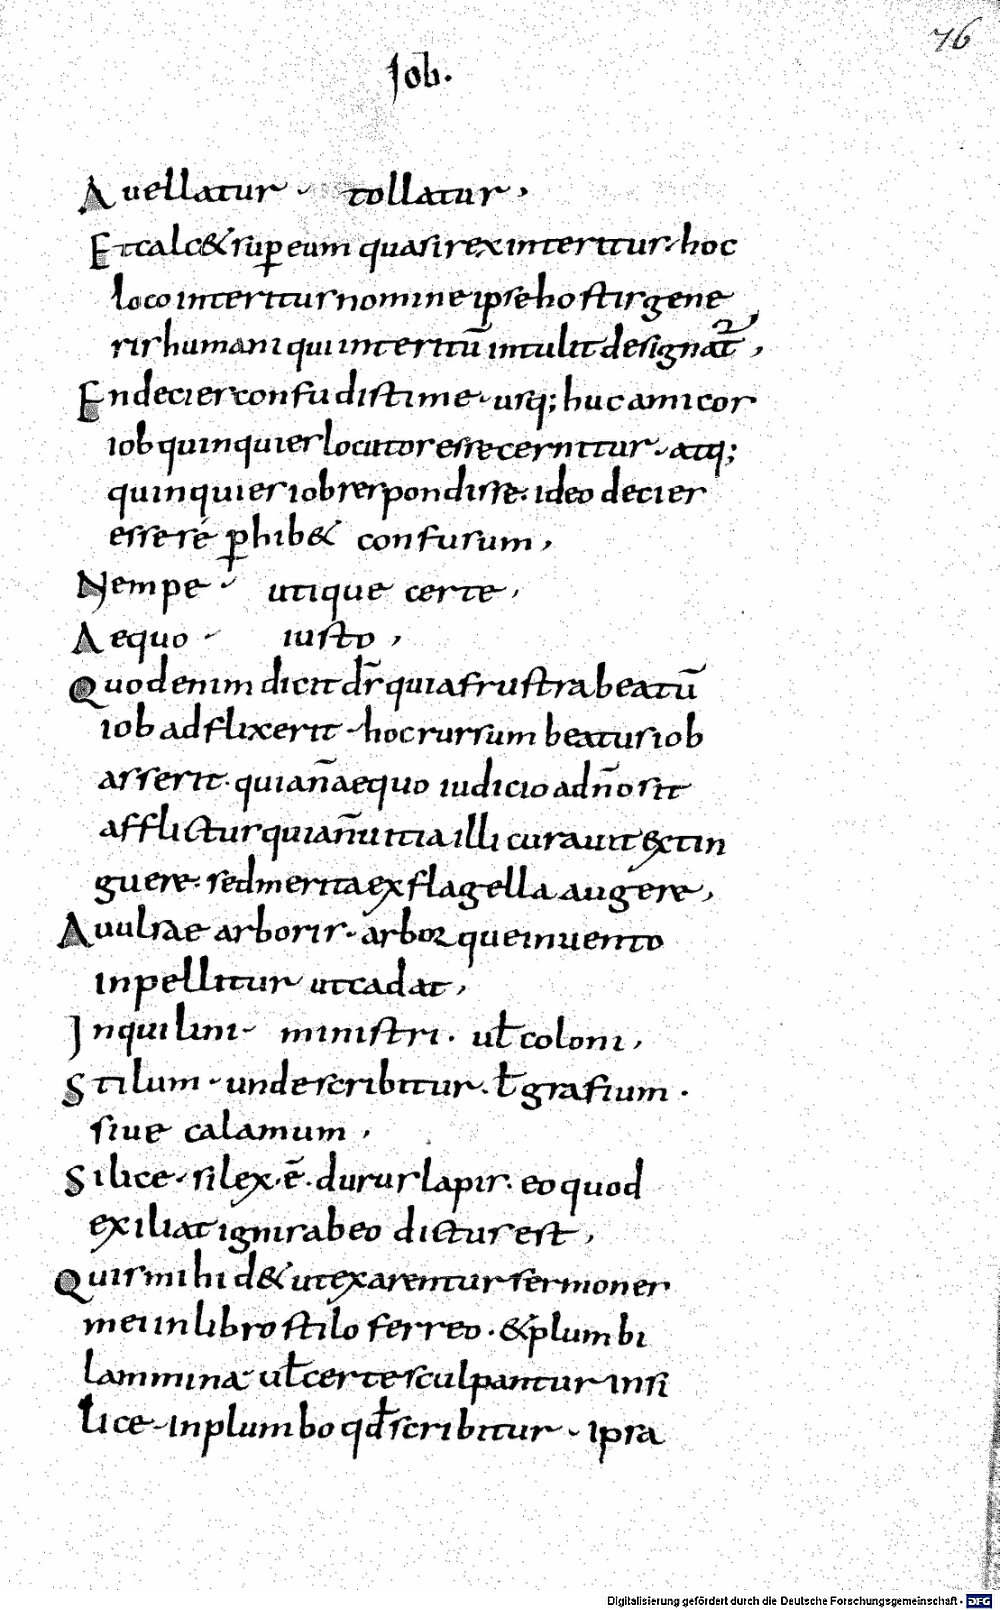 76
Job.
Auellatur · tollatur,
Et calc& sup eum quasi rex interitus · hoc
loco interitus nomine ipse hostis gene
ris humani qui interitū intulit designat̄,
En decies confudistime · usq; huc amicos
iob quinquies locutos esse cernitur · atq;
quinquies iob respondisse · ideo decies
esse sé p̱hib& confusum,
Nempe · utique certe,
Aequo · iusto,
Quod enim dicit dr̄ quia frustra beatū
iob adflixerit · hoc rursum beatus iob
asserit · quia n̄ aequo iudicio ad n̄o sit
afflictus quia n̄ uitia illi curauit extin
guere · sed merita ex flagella augere,
Auulsae arboris · arbor que in uento
inpellitur ut cadat,
Inquilini · ministri · uɫ coloni,
Stilum · unde scribitur · ɫ grafium ·
siue calamum,
Silice · silex · ē · durus lapis · eo quod
exiliat ignis ab eo dictus est,
Quis mihi d& ut exarentur sermones
mei in libro stilo ferreo · & plumbi
lammina uɫ certe sculpantur in si
lice · in plumbo qđ scribitur · ipsa
Digitalisierung gefördert durch die Deutsche Forschungsgemeinschaft - DFG